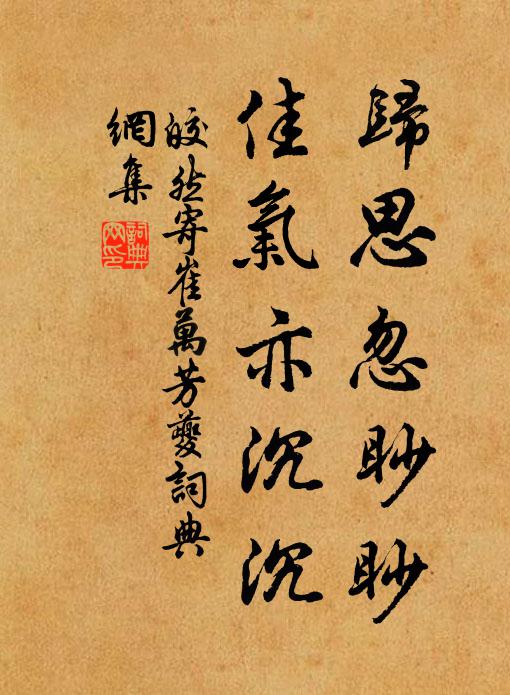 歸思忽眇眇
佳氣亦沉沉
皎然寄崔萬芳夔詞典
網集
詞典
網印